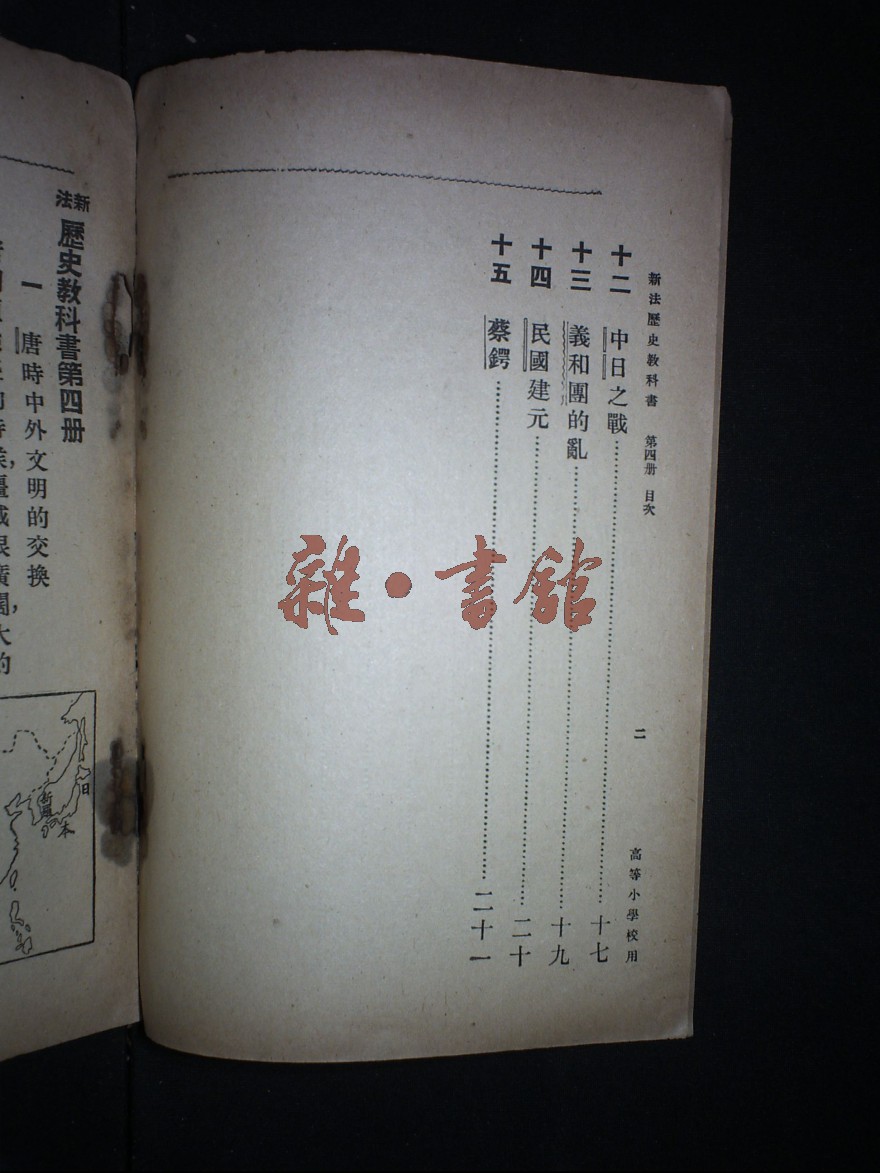 新法歷史教科書 第四册 目次 二 高等小學校用
十二 中日之戰 十七
十三 義和團的亂 十九
十四 民國建元 二十
十五 蔡鍔 二十一
雜·書館
新法 歷史教科書第四册
一 唐時中外文明的交換
新羅
日本